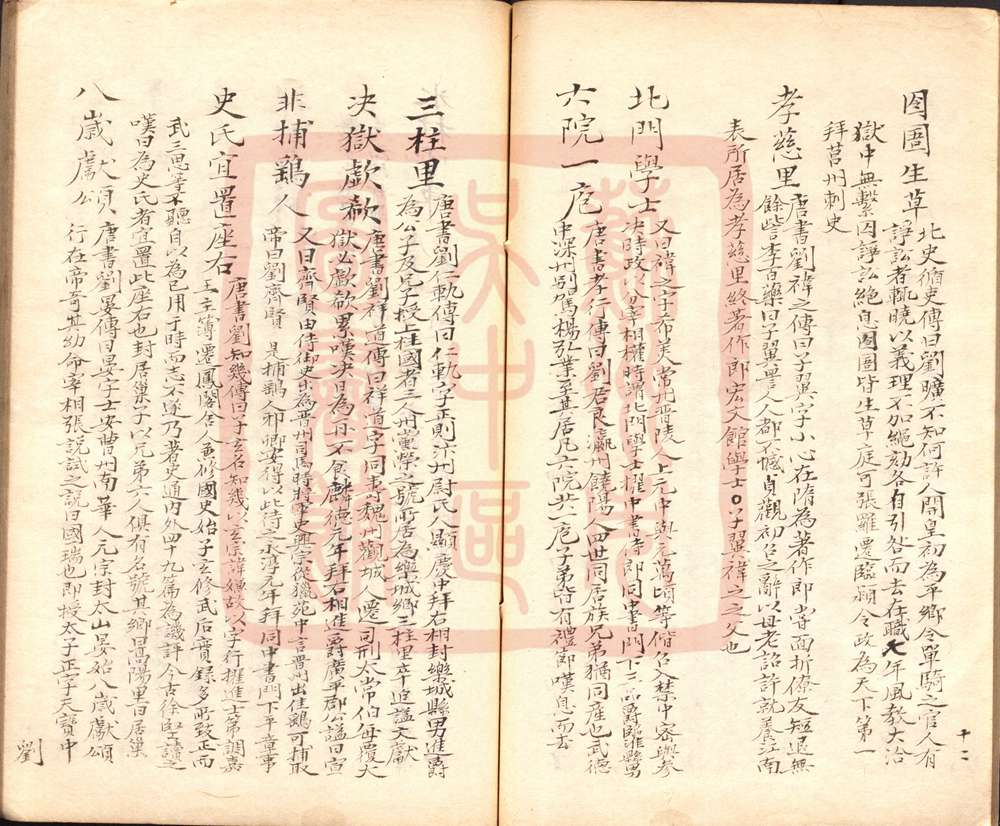 囹圄生草 北史循吏傳曰劉曠不知何許人開皇初為平鄉令單騎之官人有
諍訟者輒曉以義理不加繩劾各自引咎而去在職七年風教大洽
獄中無繫囚諍訟絕息囹圄皆生草庭可張羅遷臨潁令政為天下第一
拜莒州刺史
孝慈里 唐書劉禕之傳曰子翼字小心在隋為著作郎嘗面折僚友短退無
餘訾李百藥曰子翼詈人人都不憾貞觀初召之辭以母老詔許就養江南
表所居為孝慈里終著作郎宏文館學士○子翼禕之之父也
北門學士 又曰禕之字希美常州晉陵人上元中與元萬頃等偕召入禁中密與參
決時政以分宰相權時謂北門學士擢中書侍郎同中書門下三品爵臨淮縣男
六院一庖 唐書孝行傳曰劉君良瀛州饒陽人四世同居族兄弟猶同產也武德
中深州別駕楊弘業至其居凡六院共一庖子弟皆有禮節嘆息而去
十二
三柱里 唐書劉仁軌傳曰仁軌字正則汴州尉氏人顯慶中拜右相封樂城縣男進爵
為公子及兄子授上柱國者三人州黨榮之號所居為樂城鄉三柱里卒追謚文獻
決獄歔欷 唐書劉祥道傳曰祥道字同壽魏州觀城人遷司刑太常伯每覆大
獄必歔欷累嘆決日為再不食麟德元年拜右相進爵廣平郡公謚曰宣
非捕鷂人 又曰齊賢由侍御史出為晉州司馬時將軍史興宗從獵苑中言晉州出佳鷂可捕取
帝曰劉齊賢 是捕鷂人邪卿安得以此待之永淳元年拜同中書門下平章事
史氏宜置座右 唐書劉知幾傳曰子玄名知幾以玄宗諱嫌故以字行擢進士第調嘉
王主薄遷鳳閣舍人兼修國史始子玄修武后實録多所改正而
武三思等不聽自以為見用于時而志不遂乃著史通內外四十九篇為譏評今古徐堅讀之
嘆曰為史氏者宜置此座右也封居巢子以兄弟六人俱有名號其鄉曰高陽里曰居巢
八歲獻頌 唐書劉晏傳曰晏字士安曹州南華人元宗封太山晏始八歲獻頌
行在帝奇其幼命宰相張說試之說曰國瑞也即授太子正字天寶中
劉